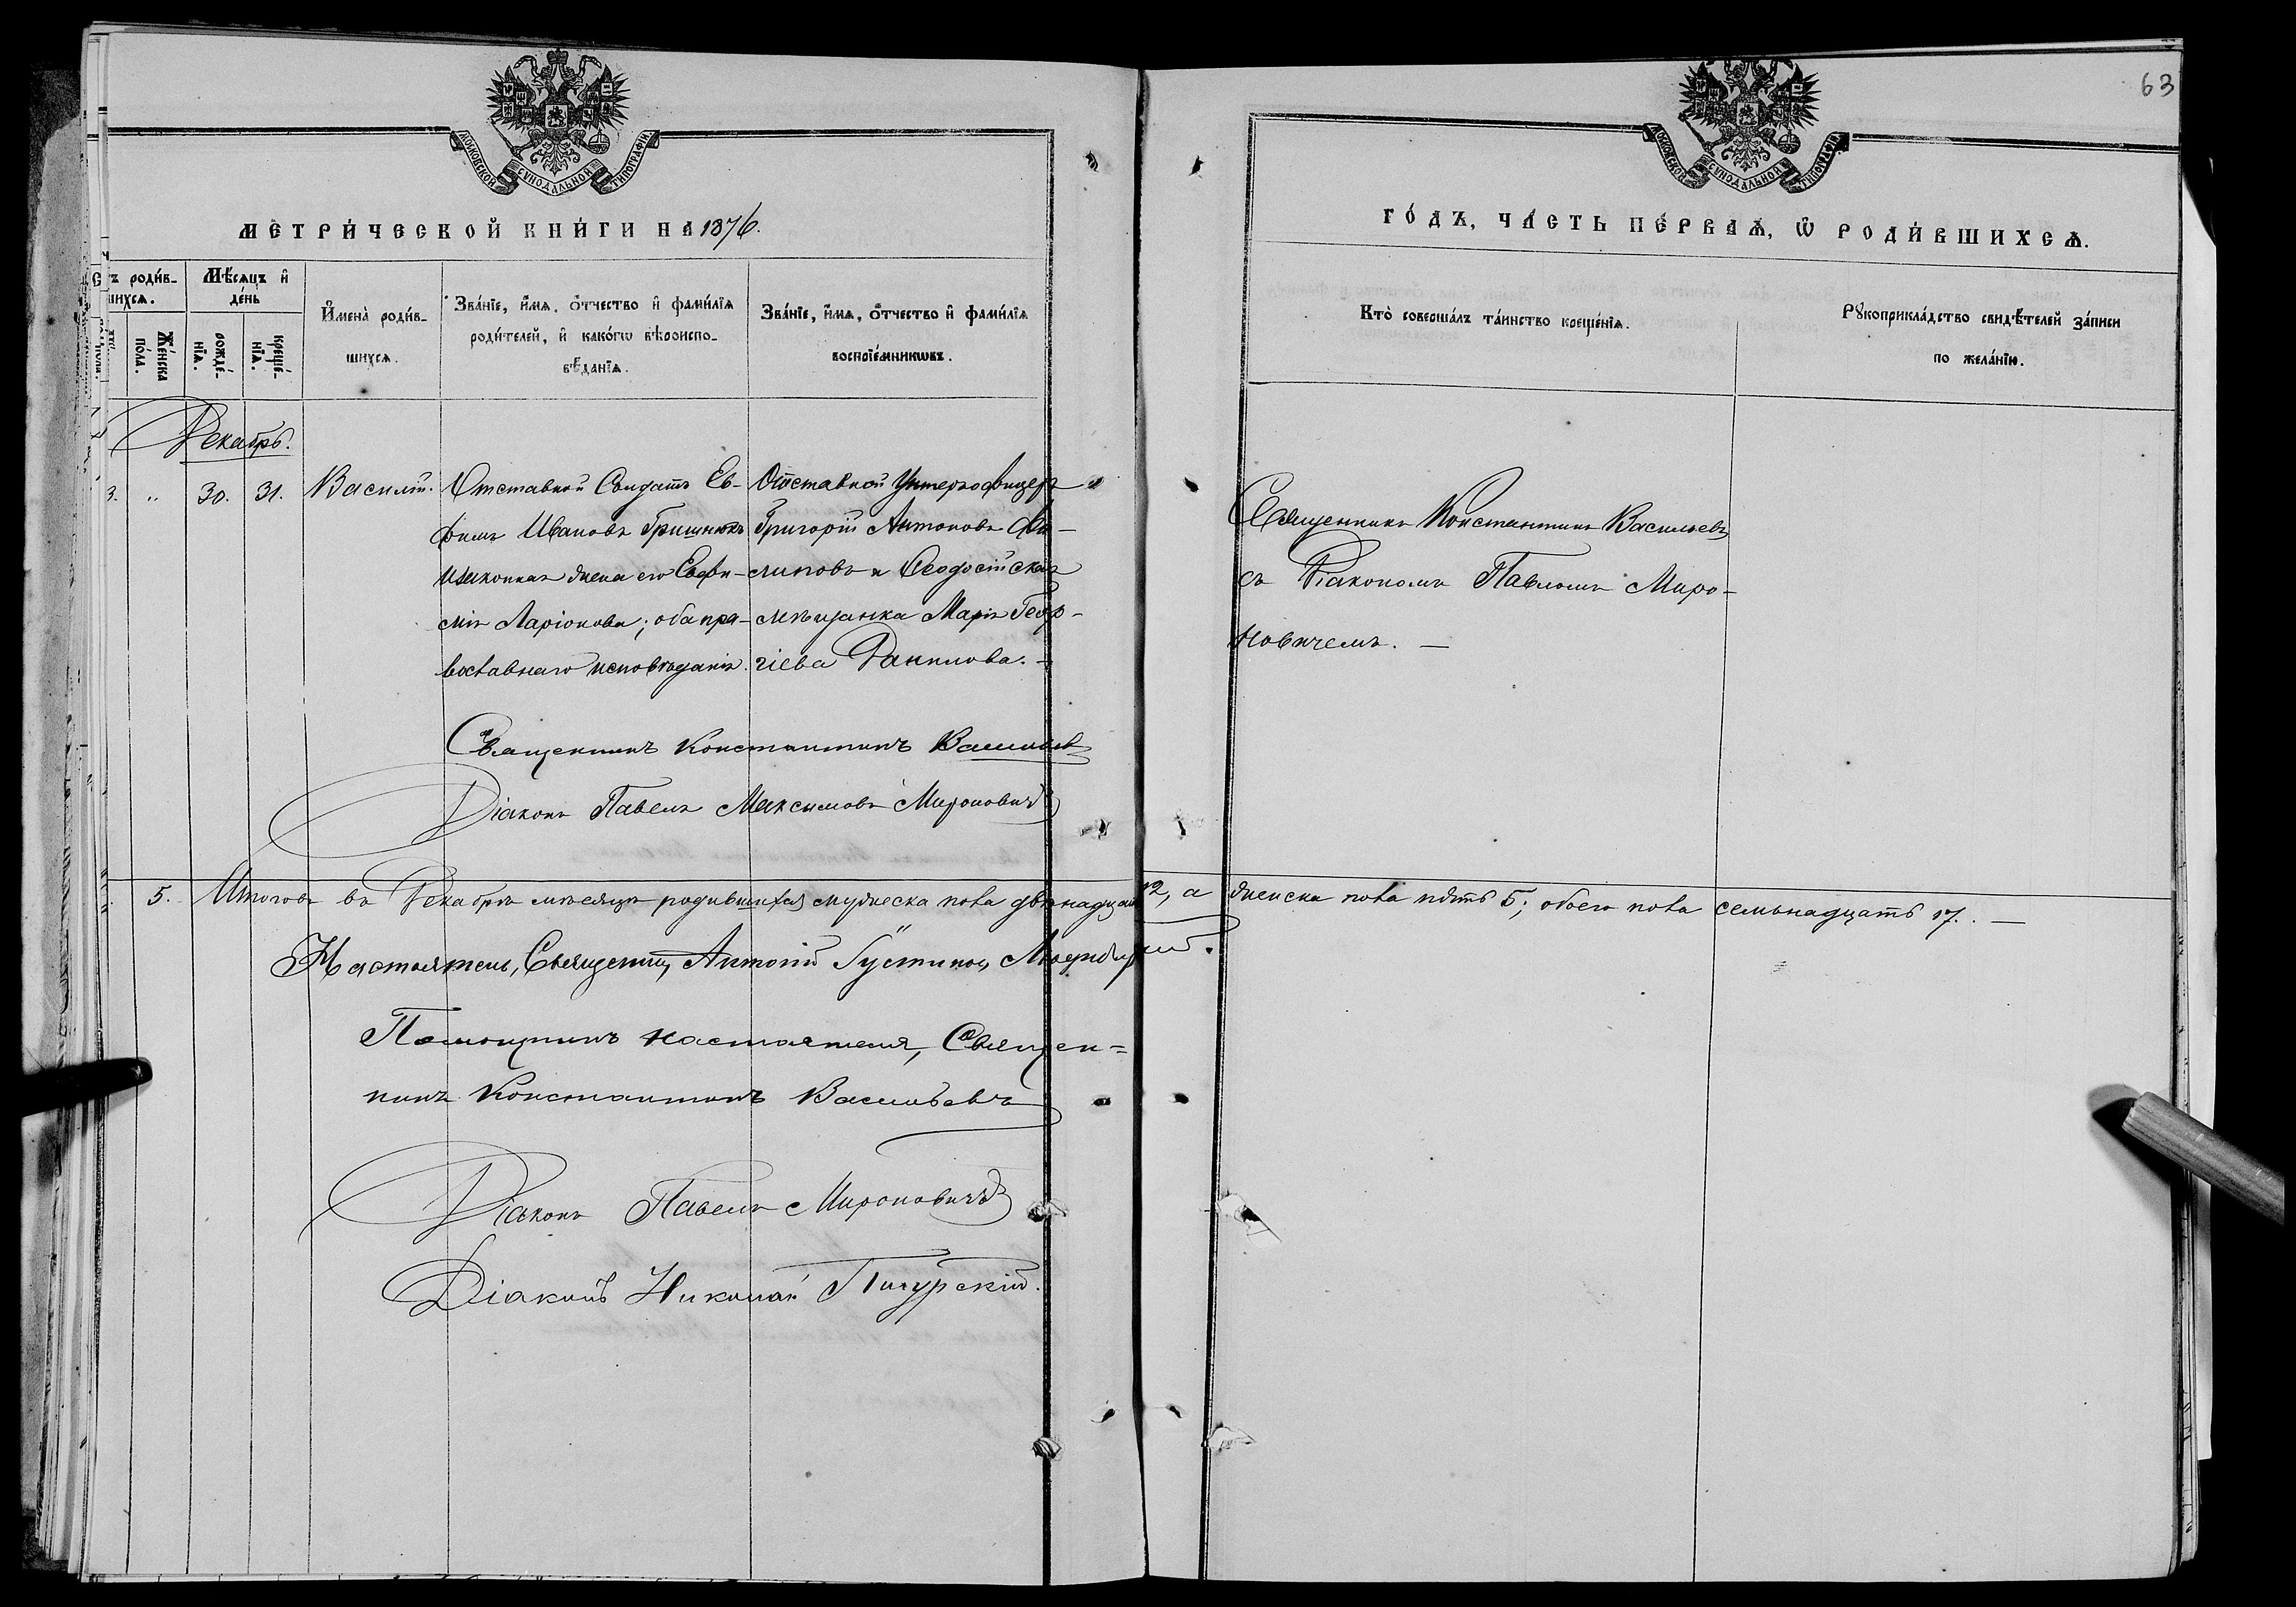 63
МОСКОВСКОЙ СѴНОДАЛЬНОЙ ТИПОГРАФІИ
МОСКОВСКОЙ СѴНОДАЛЬНОЙ ТИПОГРАФІИ
МЕТРИ́ЧЕСКОЙ КНИ́ГИ НА 1876.
ГО́ДЪ, ЧА́СТЬ ПЕ́РВАѦ, Ѡ҆ РОДИ́ВШИХСѦ.
тъ роди́в-
шихсѧ.
Мѣ́сѧцъ и҆
де́нь
Же́нска
по́ла.
рожде́-
нїѧ.
креще́-
нїѧ.
И҆мена̀ роди́в-
шихсѧ.
Зва́нїе, и҆́мѧ, ѻ҆́тчество и҆ фами́лїѧ
роди́телей, и҆ како́гѡ вѣроиспо-
вѣ́данїѧ.
Зва́нїе, и҆́мѧ, ѻ҆́тчество и҆ фами́лїѧ
воспрїе́мникѡвъ.
Кто̀ соверша́лъ та́инство креще́нїѧ.
Рꙋкоприкла́дство свидѣ́телей за́писи
по жела́нїю.
Декабрь.
3. " 30. 31. Василій.
Отставной Солдатъ Ев-
фимъ Ивановъ Гришнюкъ
и законная жена его Евфи-
мія Ларіонова; оба пра-
вославнаго исповѣданія.
Отставной Унтеръ-офицеръ
Григорій Антоновъ Фи-
липовъ и Ѳеодосійская
мѣщанка Марія Геор-
гіева Данилова. –
Священникъ Константинъ Васильевъ
съ Діакономъ Павломъ Миро-
новичемъ. —
Священникъ Константинъ Васильевъ
Діаконъ Павелъ Максимовъ Мироновичъ
5. Итогов въ Декабрѣ мѣсяцѣ родившихся мужеска пола двѣнадцать 12, а женска пола пять 5; обоего пола семьнадцать 17. —
Настоятель, Священникъ Антоній Іустинов
Помощникъ настоятеля, Священ=
никъ Константинъ Васильевъ
Діаконъ Павелъ Мироновичъ
Діаконъ Николай Пичурскій.